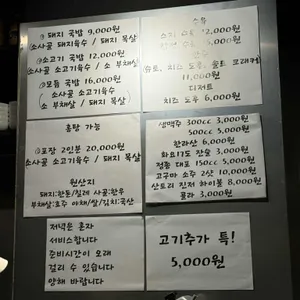 돼지 국밥 9,000원
(소사골 돼지육수 / 돼지 목살)
소고기 국밥 12,000원
(소사골 소고기육수 / 소 부채살)
모듬 국밥 16,000원
(소사골 소고기육수
/ 소 부채살 / 돼지 목살)
혼밥 가능
포장 2인분 20,000원
소사골 소고기육수 / 돼지 목살
원산지
돼지:한돈/칠레 사골:한우
부채살:호주 야채/쌀/김치:국산
저녁은 혼자
서비스합니다
준비시간이 오래
걸리 수 있습니다
양해 바랍니다
수육
12,000원
11,000원
디저트
치즈 도주 6,000원
생맥주 300cc 3,000원
500cc 5,000원
한라산 6,000원
화요17도 잔술 3,000원
정종 대포 150cc 5,000원
고구마 소주 2잔 10,000원
산토리 진저 하이볼 8,000원
콜라 3,000원
고기추가 특!
5,000원